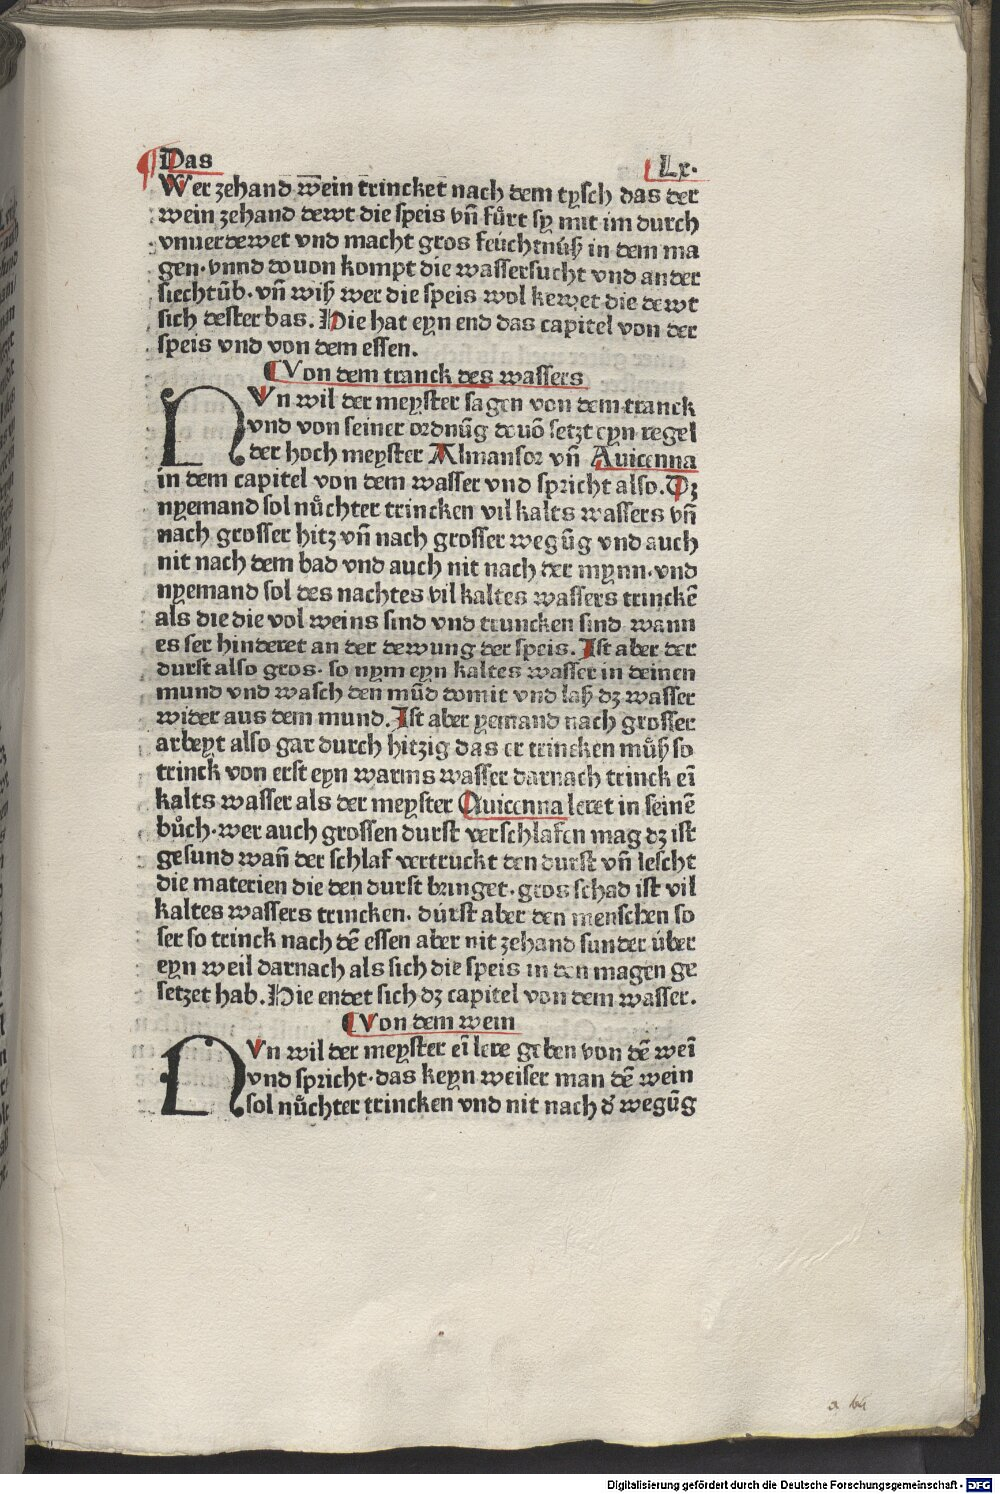 ¶Das Lx.
Wer zehand wein trincket nach dem tysch das der
wein zehand dewt die speis vñ fuͦrt sy mit im durch
vnuerdewet vnd macht gros feúchtnúß in dem ma
gen·vnnd douon kompt die wassersucht vnd ander
siechtūb·vñ wiß wer die speis wol kewet die dewt
sich dester bas. Hie hat eyn end das capitel von der
speis vnd von dem essen.
¶Von dem tranck des wassers
NVn wil der meyster sagen von dem tranck
vnd von seiner ordnūg douō setzt eyn regel
der hoch meyster Almansor vñ Auicenna
in dem capitel von dem wasser vnd spricht also. Dz
nyemand sol nuͦchter trincken vil kalts wassers vñ
nach grosser hitz vñ nach grosser wegūg vnd auch
nit nach dem bad vnd auch nit nach der mynn·vnd
nyemand sol des nachtes vil kaltes wassers trinckē
als die die vol weins sind vnd truncken sind wann
es ser hinderet an der dewung der speis. Ist aber der
durst also gros· so nym eyn kaltes wasser in deinen
mund vnd wasch den mūd domit vnd laß dz wasser
wider aus dem mund. Ist aber yemand nach grosser
arbeyt also gar durch hitzig das er trincken muͦß so
trinck von erst eyn warms wasser darnach trinck eī
kalts wasser als der meyster Auicenna leret in seinē
buͦch·wer auch grossen durst verschlafen mag dz ist
gesund wañ der schlaf vertruckt den durst vñ lescht
die materien die den durst bringet·gros schad ist vil
kaltes wassers trincken. dúrst aber den menschen so
ser so trinck nach dē essen aber nit zehand sunder über
eyn weil darnach als sich die speis in den magen ge
setzet hab. Hie endet sich dz capitel von dem wasser.
¶Von dem wein
NVn wil der meyster eī lere geben von dē weī
vnd spricht·das keyn weiser man dē wein
sol nuͦchter trincken vnd nit nach d' wegūg
Digitalisierung gefördert durch die Deutsche Forschungsgemeinschaft - DFG